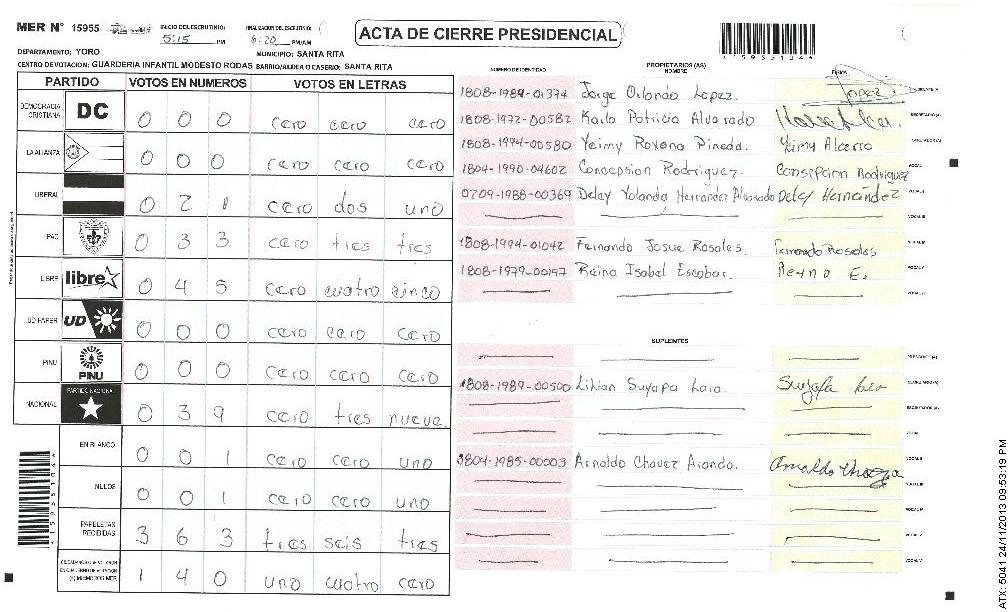 MER N° 15955 INICIO DEL ESCRUTINIO: 5:15 PM FINALIZACION DEL ESCRUTINIO: 6:20 PM/AM
ACTA DE CIERRE PRESIDENCIAL
DEPARTAMENTO: YORO MUNICIPIO: SANTA RITA
CENTRO DE VOTACION: GUARDERIA INFANTIL MODESTO RODAS BARRIO/ALDEA O CASERIO: SANTA RITA
PARTIDO VOTOS EN NUMEROS VOTOS EN LETRAS
DEMOCRACIA CRISTIANA DC 0 0 0 cero cero cero
LA ALIANZA 0 0 0 cero cero cero
LIBERAL 0 2 1 cero dos uno
PAC 0 3 3 cero tres tres
LIBRE libre 0 4 5 cero cuatro cinco
UD FAPER UD 0 0 0 cero cero cero
PINU PINU 0 0 0 cero cero cero
NACIONAL PARTIDO NACIONAL 0 3 9 cero tres nueve
EN BLANCO 0 0 1 cero cero uno
NULOS 0 0 1 cero cero uno
PAPELETAS RECIBIDAS 3 6 3 tres seis tres
CIUDADANOS QUE VOTARON EN CUADERNO DE VOTACION (+) MIEMBROS MER 1 4 0 uno cuatro cero
NUMERO DE IDENTIDAD PROPIETARIOS (AS) NOMBRE FIRMA
1808-1984-01374 Jorge Orlando Lopez. Lopez
1808-1972-00582 Karla Patricia Alvarado SECRETARIO (A)
1808-1994-00580 Yeimy Roxana Pineda. Yeimy Alcerro ESCRUTADOR (A)
1804-1990-04602 Concepsion Rodriguez. Consepcion Rodriguez VOCAL
0709-1988-00369 Delcy Yolanda Hernandez Alvarado Delcy Hernández VOCAL II
VOCAL III
1808-1994-01042 Fernando Josue Rosales. Fernando Rosales VOCAL IV
1808-1979-00197 Reina Isabel Escobar. Reyna E. VOCAL V
SUPLENTES
PRESIDENTE (A)
1808-1989-00500 Lilian Suyapa Lara. Suyapa Lara SECRETARIO (A)
ESCRUTADOR (A)
VOCAL
1804-1985-00003 Arnaldo Chavez Aranda. VOCAL II
VOCAL III
VOCAL IV
VOCAL V
ATX: 5041 24/11/2013 09:53:19 PM